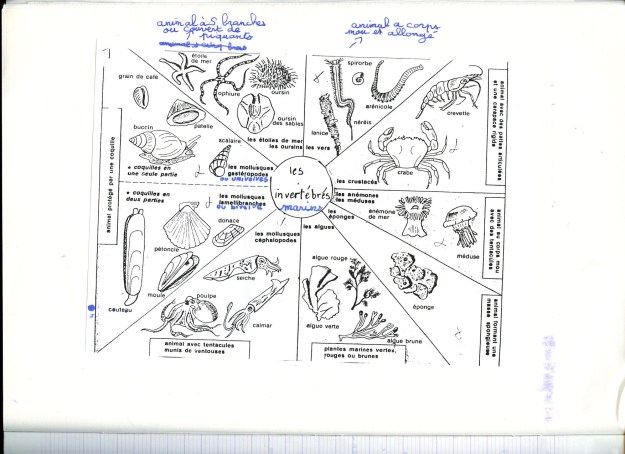 animal à 5 branches
ou couvert de
piquants
animal a corps
mou et allongé
étoile
de mer
ophiure
oursin
oursin
des sables
les étoiles de mer
les oursins
spirorbe
arénicole
néréis
lanice
les vers
crevette
crabe
les crustacés
animal avec des pattes articulées
et une carapace rigide
grain de café
patelle
buccin
scalaire
• coquilles en
une seule partie
les mollusques
gastéropodes
ou univalves
animal protégé par une coquille
les
invertébrés
marins
• coquilles en
deux parties
les mollusques
lamellibranches
donace
pétoncle
moule
couteau
les mollusques
céphalopodes
seiche
poulpe
calmar
animal avec tentacules
munis de ventouses
les algues
algue rouge
algue verte
algue brune
plantes marines vertes,
rouges ou brunes
les anémones
les méduses
anémone
de mer
méduse
animal au corps mou
avec des tentacules
les
éponges
éponge
animal formant une
masse spongieuse